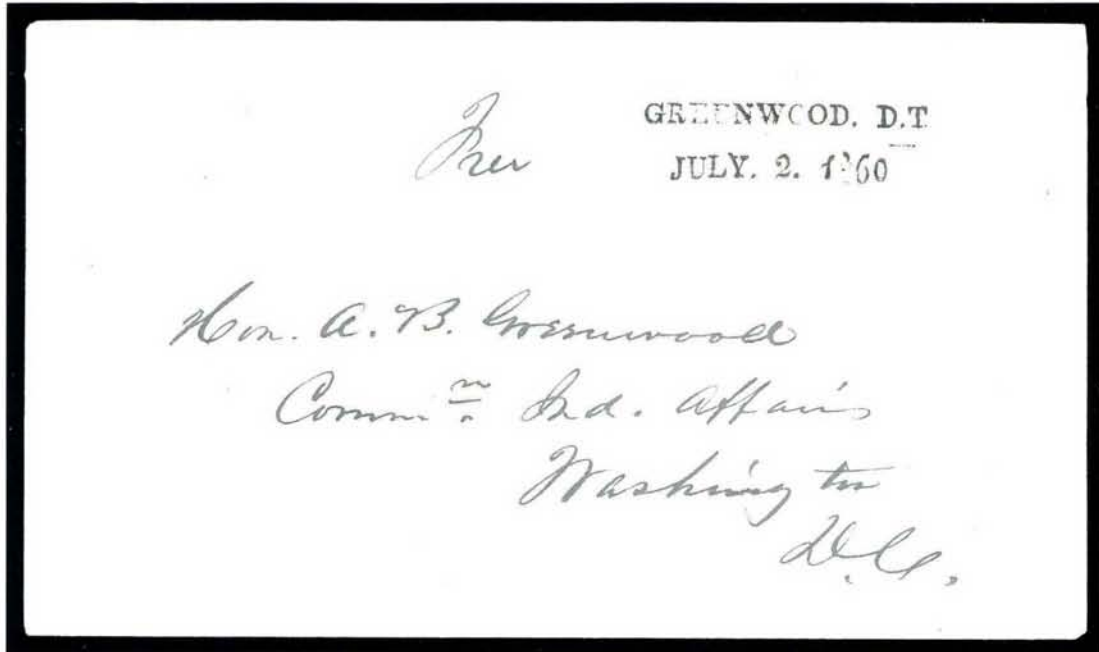 Free
GREENWOOD. D.T
JULY. 2. 1860
Hon. A. B. Greenwood
Comm.n Ind. Affairs
Washington
D.C.